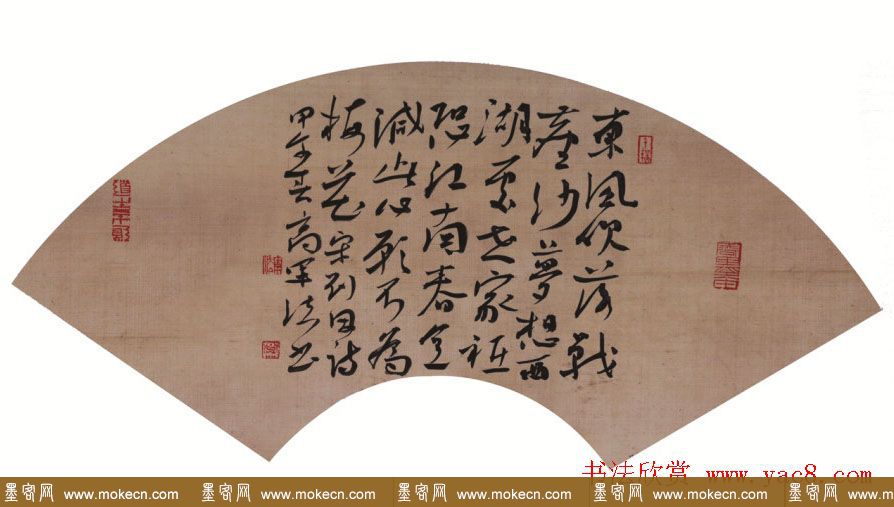 東風吹落戰
塵沙夢想西
湖處士家祇
恐江南春意
減此心原不為
梅花宋刘因诗
甲午夏高軍法书
书法欣赏 www.yac8.com
墨客网 www.mokecn.com 墨客网 www.mokecn.com 墨客网 www.mokecn.com 墨客网 www.mokecn.com